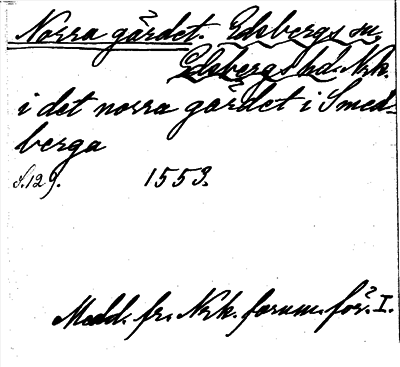 Norra gärdet. Edsbergs sn,
Edsbergs hd. Nrk.
i det norra gärdet i Smed-
berga
s. 129. 1553.
Medd. fr. Nrk. fornm. för. I.